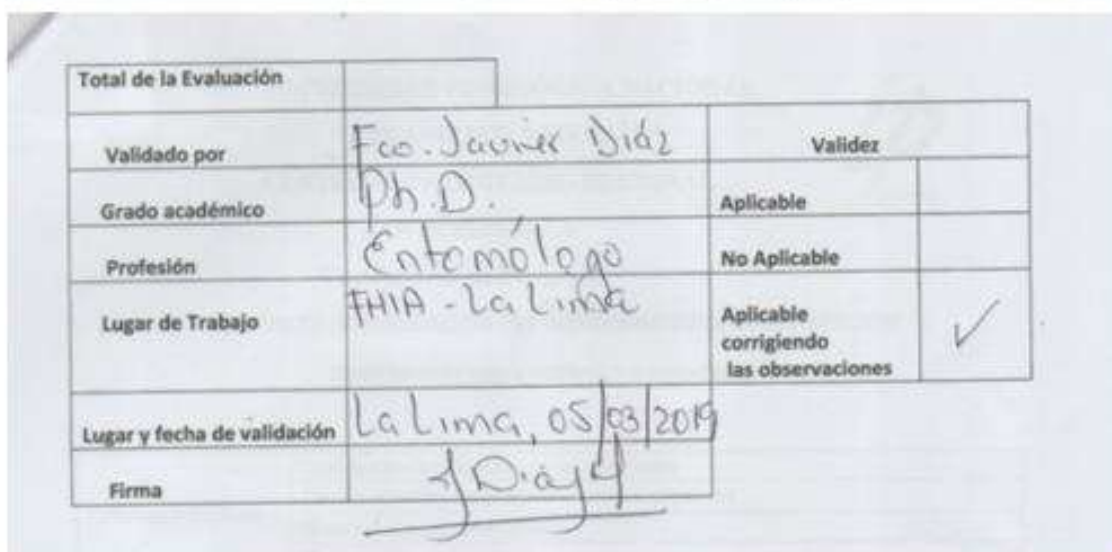 Total de la Evaluación
Validado por Fco. Javier Díáz Validez
Grado académico Ph.D. Aplicable
Profesión Entomólogo No Aplicable
Lugar de Trabajo FHIA - La Lima Aplicable
corrigiendo
las observaciones ✓
Lugar y fecha de validación La Lima, 05/03/2019
Firma